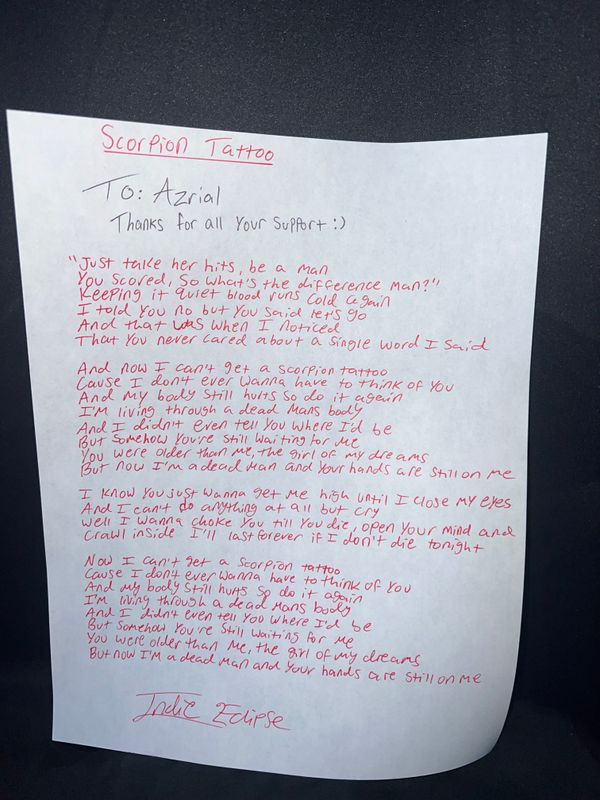 Scorpion Tattoo
To: Azrial
Thanks for all Your Support :)
"Just take her hits, be a man
You scored, So what's the difference man?"
Keeping it quiet blood runs cold again
I told You no but You said let's go
And that was when I noticed
That You never cared about a single word I said
And now I can't get a scorpion tattoo
Cause I don't ever wanna have to think of You
And my body still hurts so do it again
I'm living through a dead mans body
And I didn't even tell You where I'd be
But somehow You're still waiting for me
You were older than me, the girl of my dreams
But now I'm a dead man and Your hands are still on me
I know You just wanna get me high until I close my eyes
And I can't do anything at all but cry
Well I wanna choke You till You die, open Your mind and
crawl inside I'll last forever if I don't die tonight
Now I can't get a scorpion tattoo
Cause I don't ever wanna have to think of You
And my body still hurts so do it again
I'm living through a dead mans body
And I didn't even tell You where I'd be
But somehow You're still waiting for me
You were older than me, the girl of my dreams
But now I'm a dead man and Your hands are still on me
Indie Eclipse